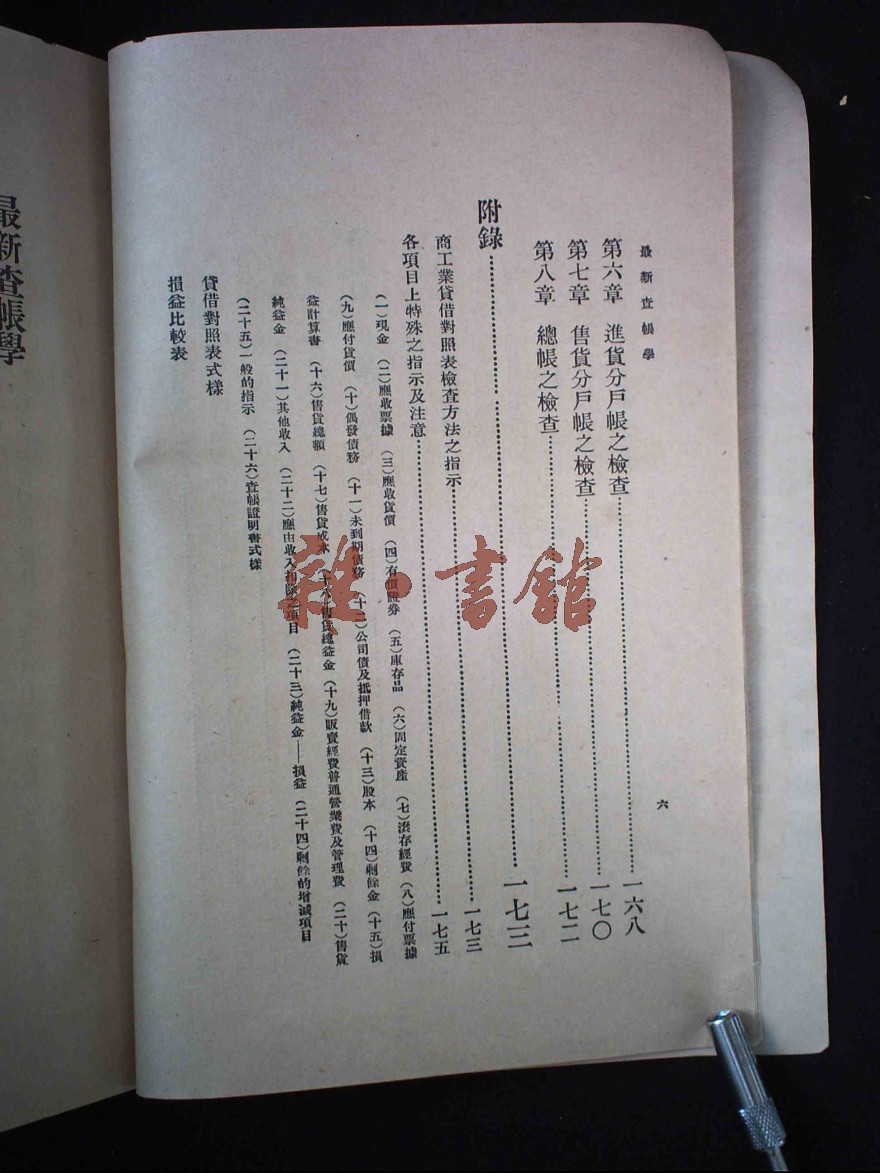 最新查帳學
六
第六章　進貨分戶帳之檢查…………一六八
第七章　售貨分戶帳之檢查…………一七〇
第八章　總帳之檢查…………一七二
附錄…………一七三
商工業貸借對照表檢查方法之指示…………一七三
各項目上特殊之指示及注意…………一七五
(一)現金　(二)應收票據　(三)應收貨價　(四)有價證券　(五)庫存品　(六)固定資產　(七)滾存經費　(八)應付票據
(九)應付貨價　(十)偶發債務　(十一)未到期債務　(十二)公司債及抵押借款　(十三)股本　(十四)剩餘金　(十五)損
益計算書　(十六)售貨總額　(十七)售貨成本　(十八)售貨總益金　(十九)販賣經費普通營業費及管理費　(二十)售貨
純益金　(二十一)其他收入　(二十二)應由收入扣除之項目　(二十三)純益金——損益　(二十四)剩餘的增減項目
(二十五)一般的指示　(二十六)查帳證明書式樣
貸借對照表式樣
損益比較表
最新查帳學
雜·書館